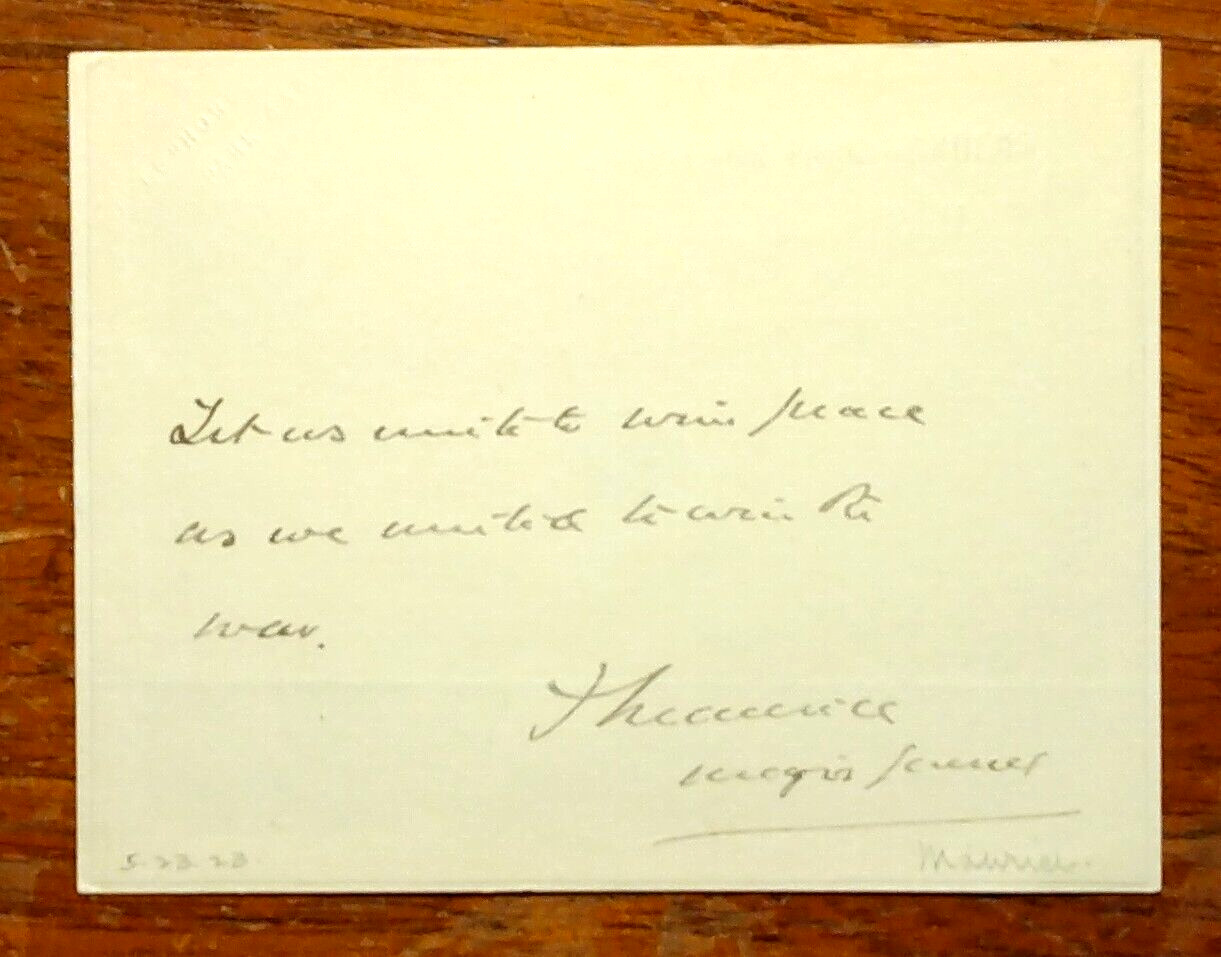 Let us unite to win peace
as we united to win the
war.
F Maurice
Major General
5-23-23.
Maurice.